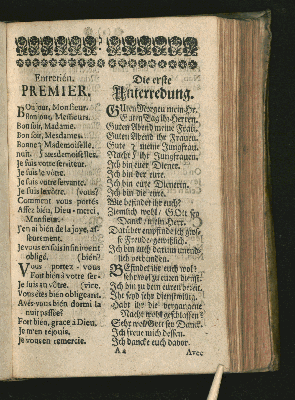 Entretien.
PREMIER.
BOn jour, Monsieur.
Bon jour, Messieurs.
Bon soir, Madame.
Bon soir, Mesdames.
Bonne Mademoiselle.
nuit. Mesdemoiselles.
Je suis votre serviteur.
Je suis le vôtre.
Je suis votre servante.
Je suis la vôtre. (vous?
Comment vous portés
Assez bien, Dieu-merci,
Monsieur.
J'en ai bien de la joye, as-
seurement.
Je vous en suis infiniment
obligé. (bien?
VOus portez-vous
Fort bien à votre ser-
Je suis au vôtre. (vice.
Vous étes bien obligeant.
Avés-vous bien dormi la
nuit passée?
Fort bien, grace à Dieu.
Je m'en réjouis.
Je vous en remercie.
Die erste
Unterredung.
GUten Morgen mein Hr.
Guten Tag ihr Herren.
Guten Abend meine Frau.
Guten Abend ihr Frauen.
Gute meine Jungfrau.
Nacht ihr Jungfrauen.
Ich bin euer Diener.
Ich bin der eure.
Ich bin eure Dienerin.
Ich bin die eure.
Wie befindet ihr euch?
Ziemlich wohl / GOtt sey
Danck / mein Herr.
Darüber empfinde ich gros-
se Freude / gewißlich.
Ich bin euch darum unend-
lich verbunden.
BEfindet ihr euch wol?
sehr wol zu euren dienst.
Ich bin zu dem euren bereit.
Ihr seyd sehr dienstwillig.
Habt ihr die vergangene
Nacht wohl geschlaffen?
Sehr wol / Gott sey Danck.
Ich freue mich dessen.
Ich dancke euch davor.
Aa Avec